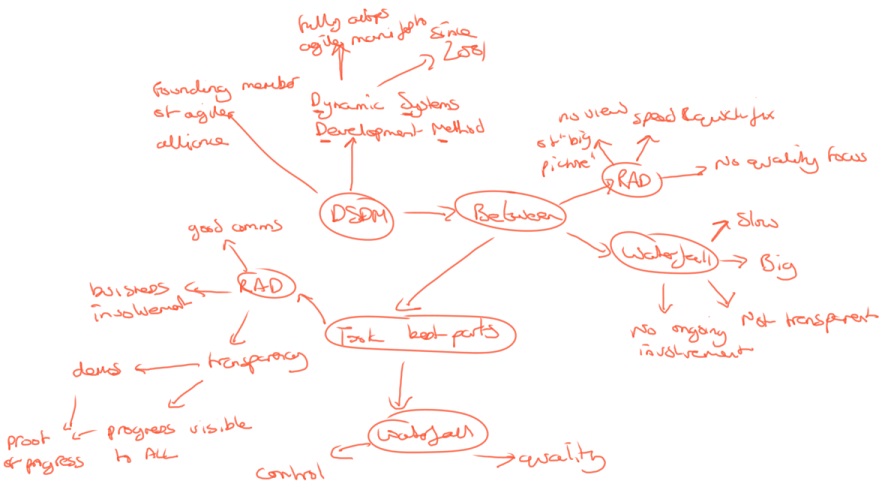 Fully adops
agile manifesto
since
2001
Founding member
of agile
alliance
Dynamic Systems
Development Method
no view
of "big
picture"
speed & quick fix
RAD
No quality focus
DSDM
Between
Slow
Waterfall
Big
Not transparent
No ongoing
involvement
good comms
RAD
business
involvement
Took best parts
transparency
demos
progress visible
to ALL
proof
of progress
Waterfall
control
quality